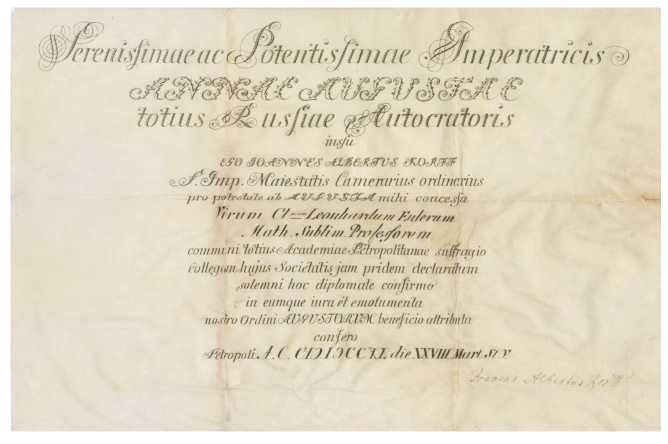 Serenissimae ac Potentissimae Imperatricis
ANNAE AUGUSTAE
totius Russiae Autocratoris
iussu
EGO IOANNES ALBERTUS KORFF
S. Imp. Maiestatis Camerarius ordinarius
pro potestate ab AUGUSTA mihi concessa
Virum Cl Leonhardum Eulerum
Math. Sublim. Professorem
communi totius Academiae Petropolitanae suffragio
Collegam hujus Societatis jam pridem declaratum
solemni hoc diplomate confirmo
in eumque iura et emolumenta
nostro Ordini AUGUSTORUM beneficio attributa
confero
Petropoli A. C. die XXVIII Mart. St. V
Albertus